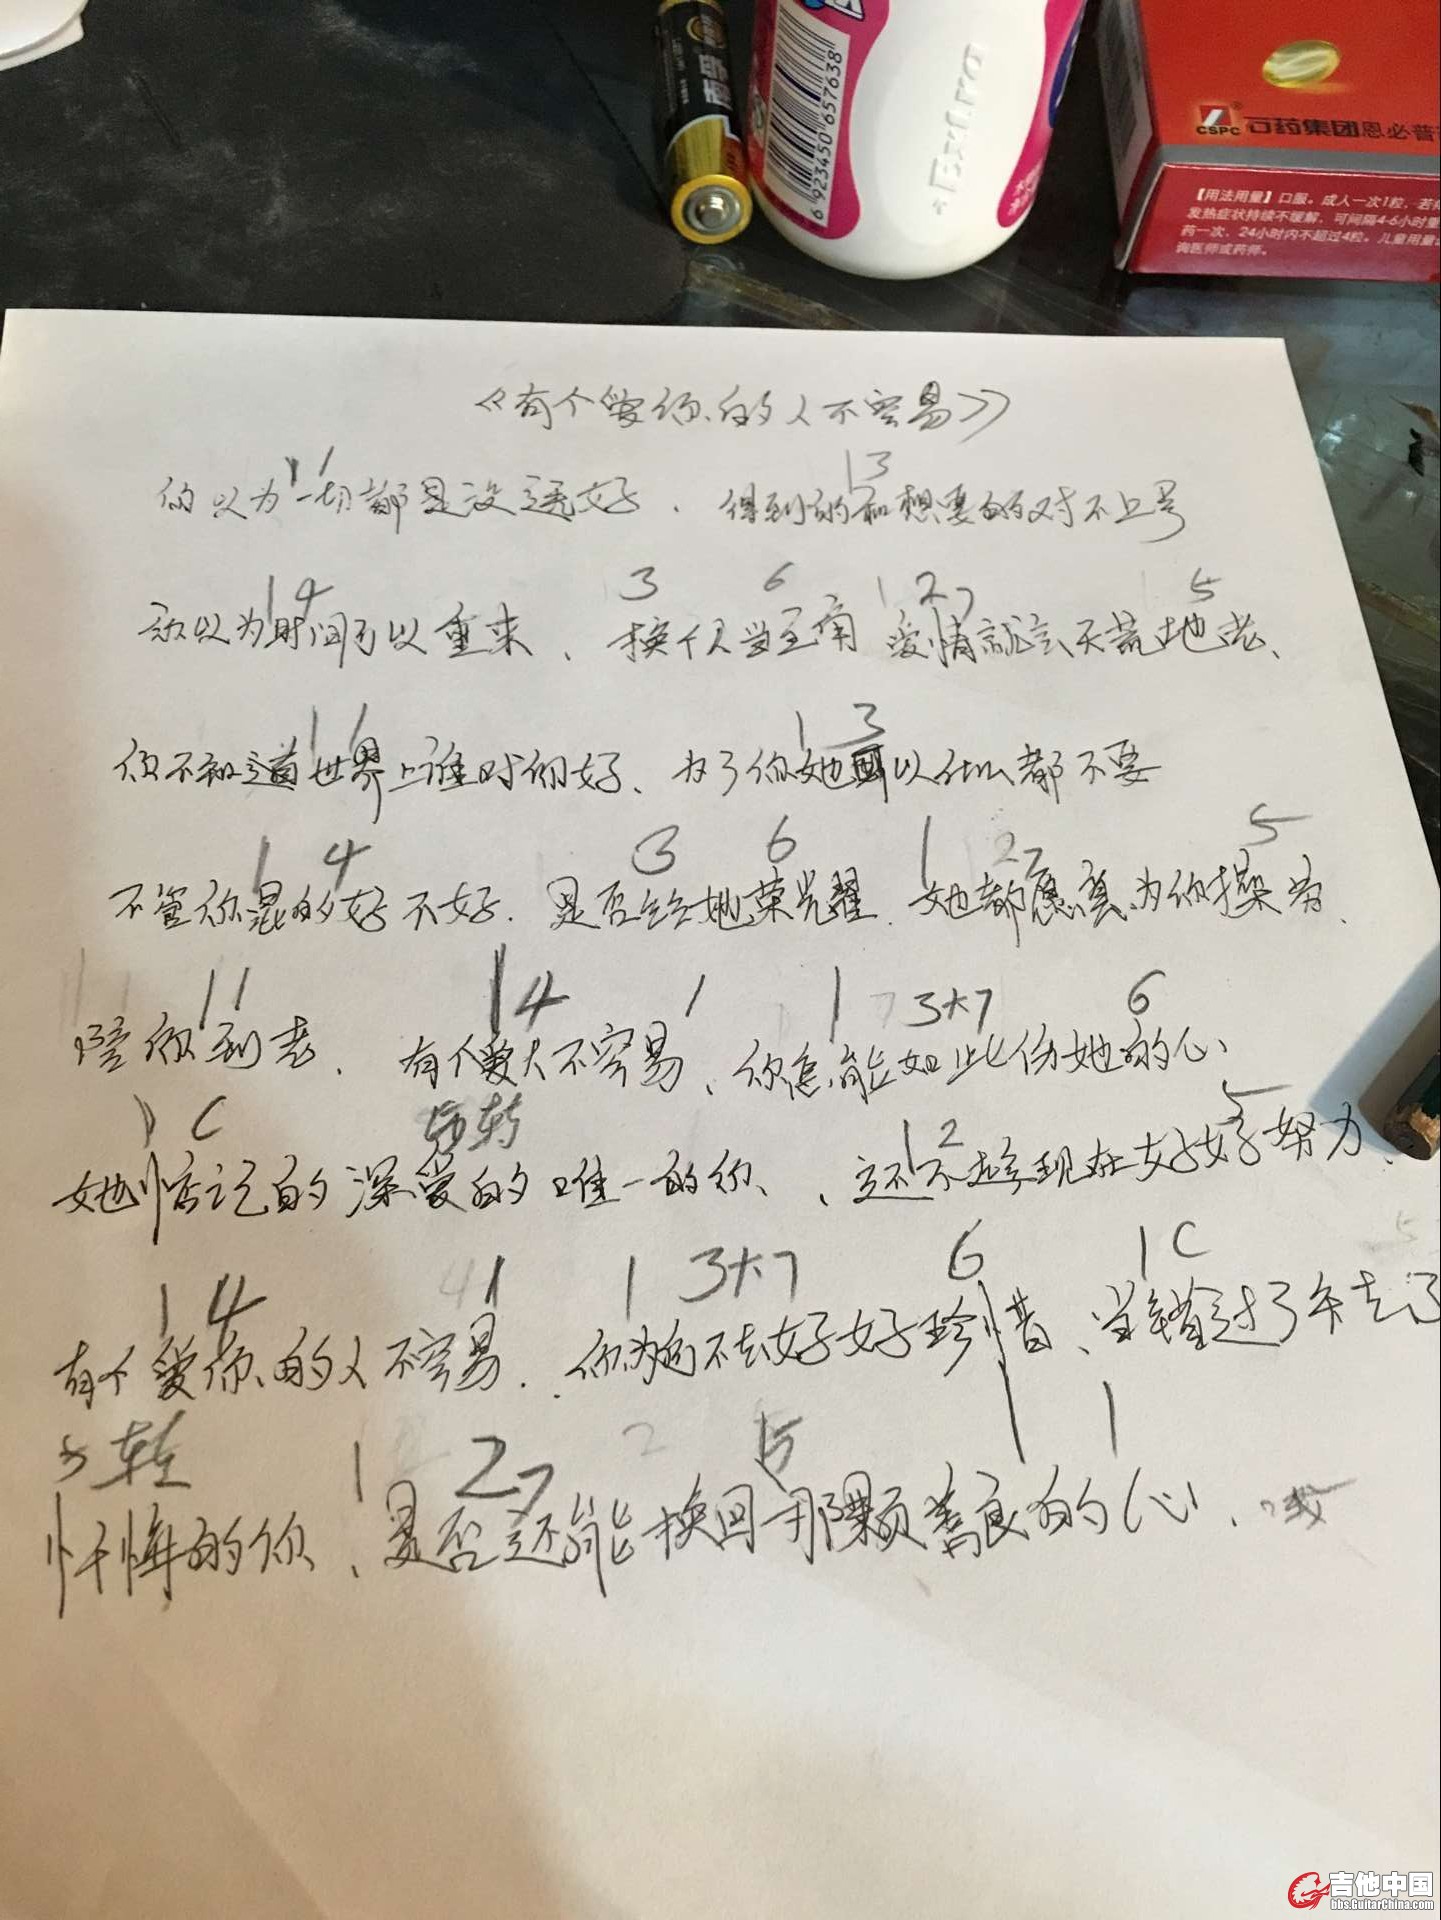 南孚
6 923450 657638
Extra
CSPC 石药集团恩必普
【用法用量】口服。成人一次1粒，若持
发热症状持续不缓解，可间隔4-6小时重
药一次，24小时内不超过4粒。儿童用量
询医师或药师。
《有个爱你的人不容易》
1 1 1 3
你以为一切都是没选好、得到的和想要的对不上号
1 4 3 6 1 27 5
你以为时间可以重来、换个人当主角 爱情就会天荒地老、
1 1 1 3
你不知道世界上谁对你好、为了你她可以什么都不要
1 4 3 6 1 27 5
不管你混的好不好、是否给她荣光耀、她都愿意为你操劳、
1 1 1 4 1 1 3大7 6
陪你到老、有个爱人不容易、你怎能如此伤她的心
1 C 5转 1 2 5
她惦记的深爱的唯一的你、还不趁现在好好努力、
1 4 4 1 1 3大7 6 1 C 5
有个爱你的人不容易、你为何不去好好珍惜、当错过了失去了
5转 1 27 2 5 1 1
忏悔的你、是否还能换回那颗善良的心、
吉他中国
bbs.GuitarChina.com